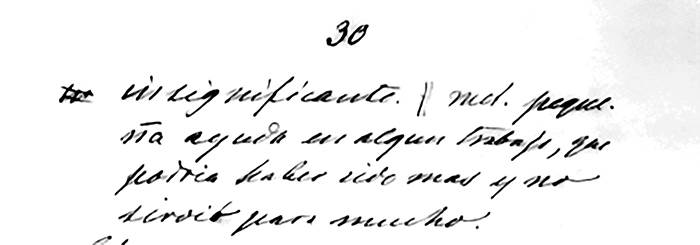 30
insignificante. || md. peque.
ña ayuda en algun trabajo, que
podria haber sido mas y no
sirvió para mucho.